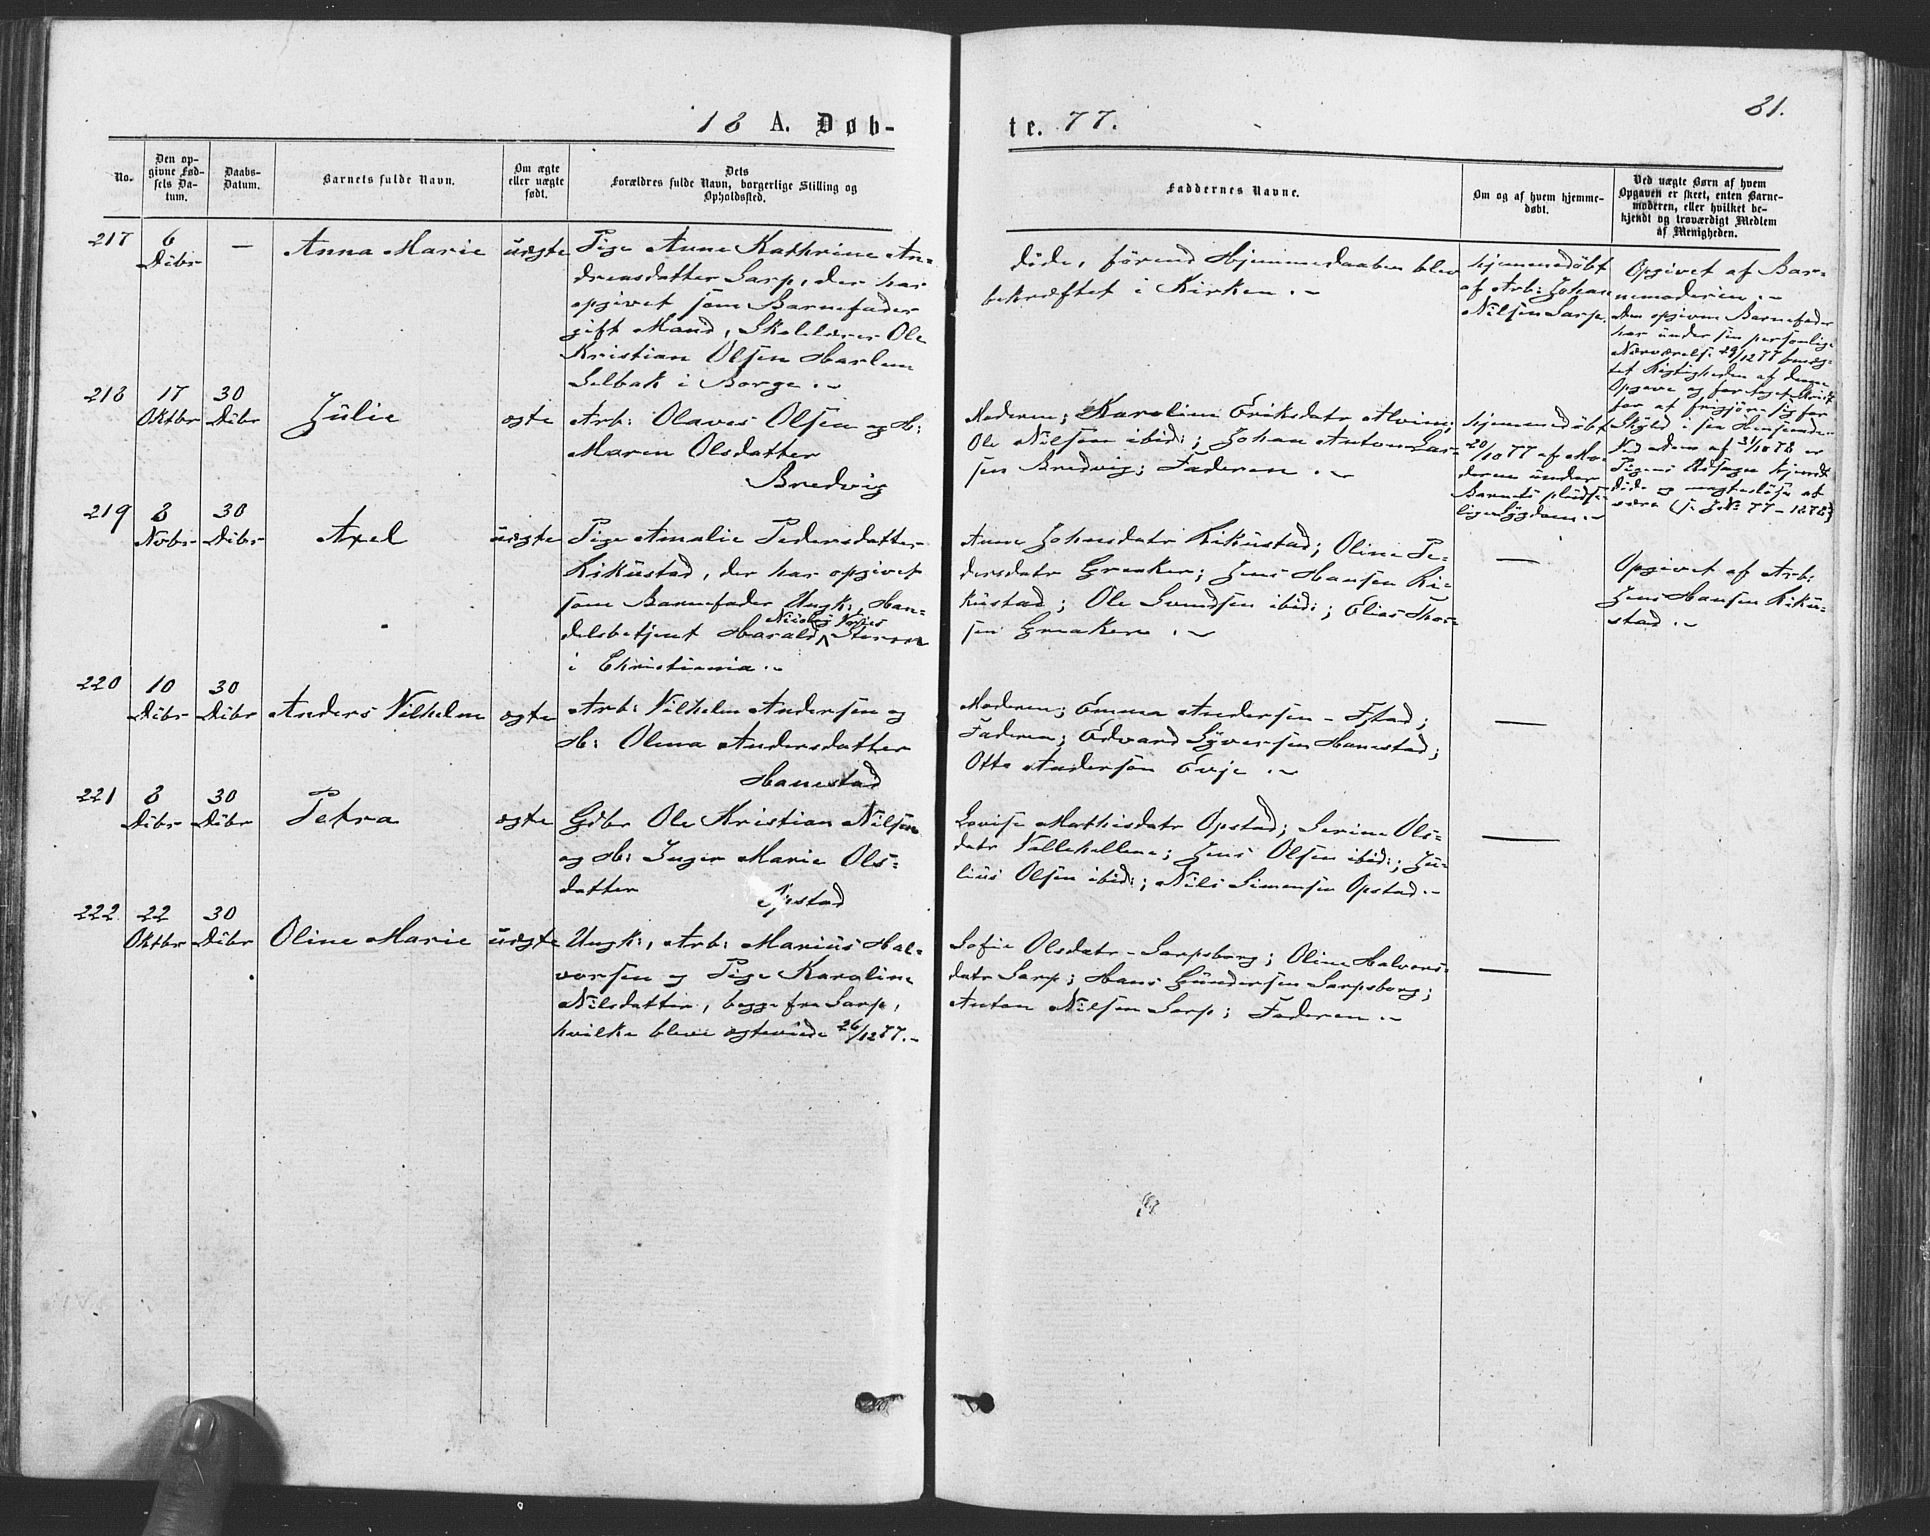 81.
18 A. Døb-
te. 77.
No.
Den op-
givne Fød-
sels Da-
tum.
Daabs-
Datum.
Barnets fulde Navn.
Om ægte
eller uægte
født.
Dets
Forældres fulde Navn, borgerlige Stilling og
Opholdssted.
Faddernes Navne.
Om og af hvem hjemme-
døbt.
Ved uægte Børn af hvem
Opgaven er skeet, enten Barne-
moderen, eller hvilket be-
kjendt og troværdigt Medlem
af Menigheden.
217
6
Dcbr
—
Anna Marie
uægte
Pige Anne Kathrine An-
dreasdatter Sarp, der har
opgivet som Barnefader
gift Mand, Skolelærer Ole
Kristian Olsen Harlem
Selbak i Borge.
døde, førend Hjemmedaaben blev
bekræftet i Kirken.
hjemmedöbt
af Arb: Johan
Nilsen Sarp.
Opgivet af Bar-
nemoderen.
Den opgivne Barnefader
har under sin personlige
Nærværelse 29/12 77 benæg-
tet Rigtigheden af denne
Opgave og foretaget Skridt
for at frigjøre sig for
Skyld i sin Henseende
Ved af 31/10 78 er
Pigens Udsagn kjendt
død og magtesløst at
være (s. J No 77 - 1878)
218
17
Oktbr
30
Dcbr
Julie
ægte
Arb: Olaves Olsen og H:
Maren Olsdatter
Bredvig
Moderen; Karoline Eriksdatr Alvim;
Ole Nilsen ibid:; Johan Anton Lar-
sen Bredvig; Faderen.
hjemmedöbt
20/10 77 af Mo-
deren under
Barnets pludse-
lige Sygdom.
219
8
Novbr
30
Dcbr
Axel
uægte
Pige Amalie Pedersdatter
Kikustad, der har opgivet
som Barnefader Ungk:, Han-
delsbetjent Harald Storm
i Christiania.
Anne Johnsdatr Kikustad; Oline Pe-
dersdatr Greaker; Jens Hansen Ki-
kustad; Ole Svendsen ibid:; Elias Tho-
sen Greaker.
—
Opgivet af Arb:
Jens Hansen Kiku-
stad.
220
10
Dcbr
30
Dcbr
Anders Vilhelm
ægte
Arb: Vilhelm Andersen og
H: Olena Andersdatter
Hanestad
Moderen; Emma Andersen - Fstad;
Faderen; Edvard Syversen Hanestad;
Otto Anderson Evje.
—
221
8
Dcbr
30
Dcbr
Petra
ægte
Gdbr Ole Kristian Nilsen
og H: Inger Marie Ols-
datter
Opstad
Lovise Mathisdatr Opstad; Serine Ols-
datr Vallehellene; Jens Olsen ibid:; Ju-
lius Olsen ibid:; Nils Simensen Opstad.
—
222
22
Oktbr
30
Dcbr
Oline Marie
uægte
Ungk:, Arb: Marius Hal-
vorsen og Pige Karoline
Nilsdatter, begge fra Sarp,
hvilke bleve ægteviede 26/12 77.
Sofie Olsdatr - Sarpsborg; Oline Halvors-
datr Sarp; Hans Gundersen Sarpsborg;
Anton Nilsen Sarp; Faderen.
—